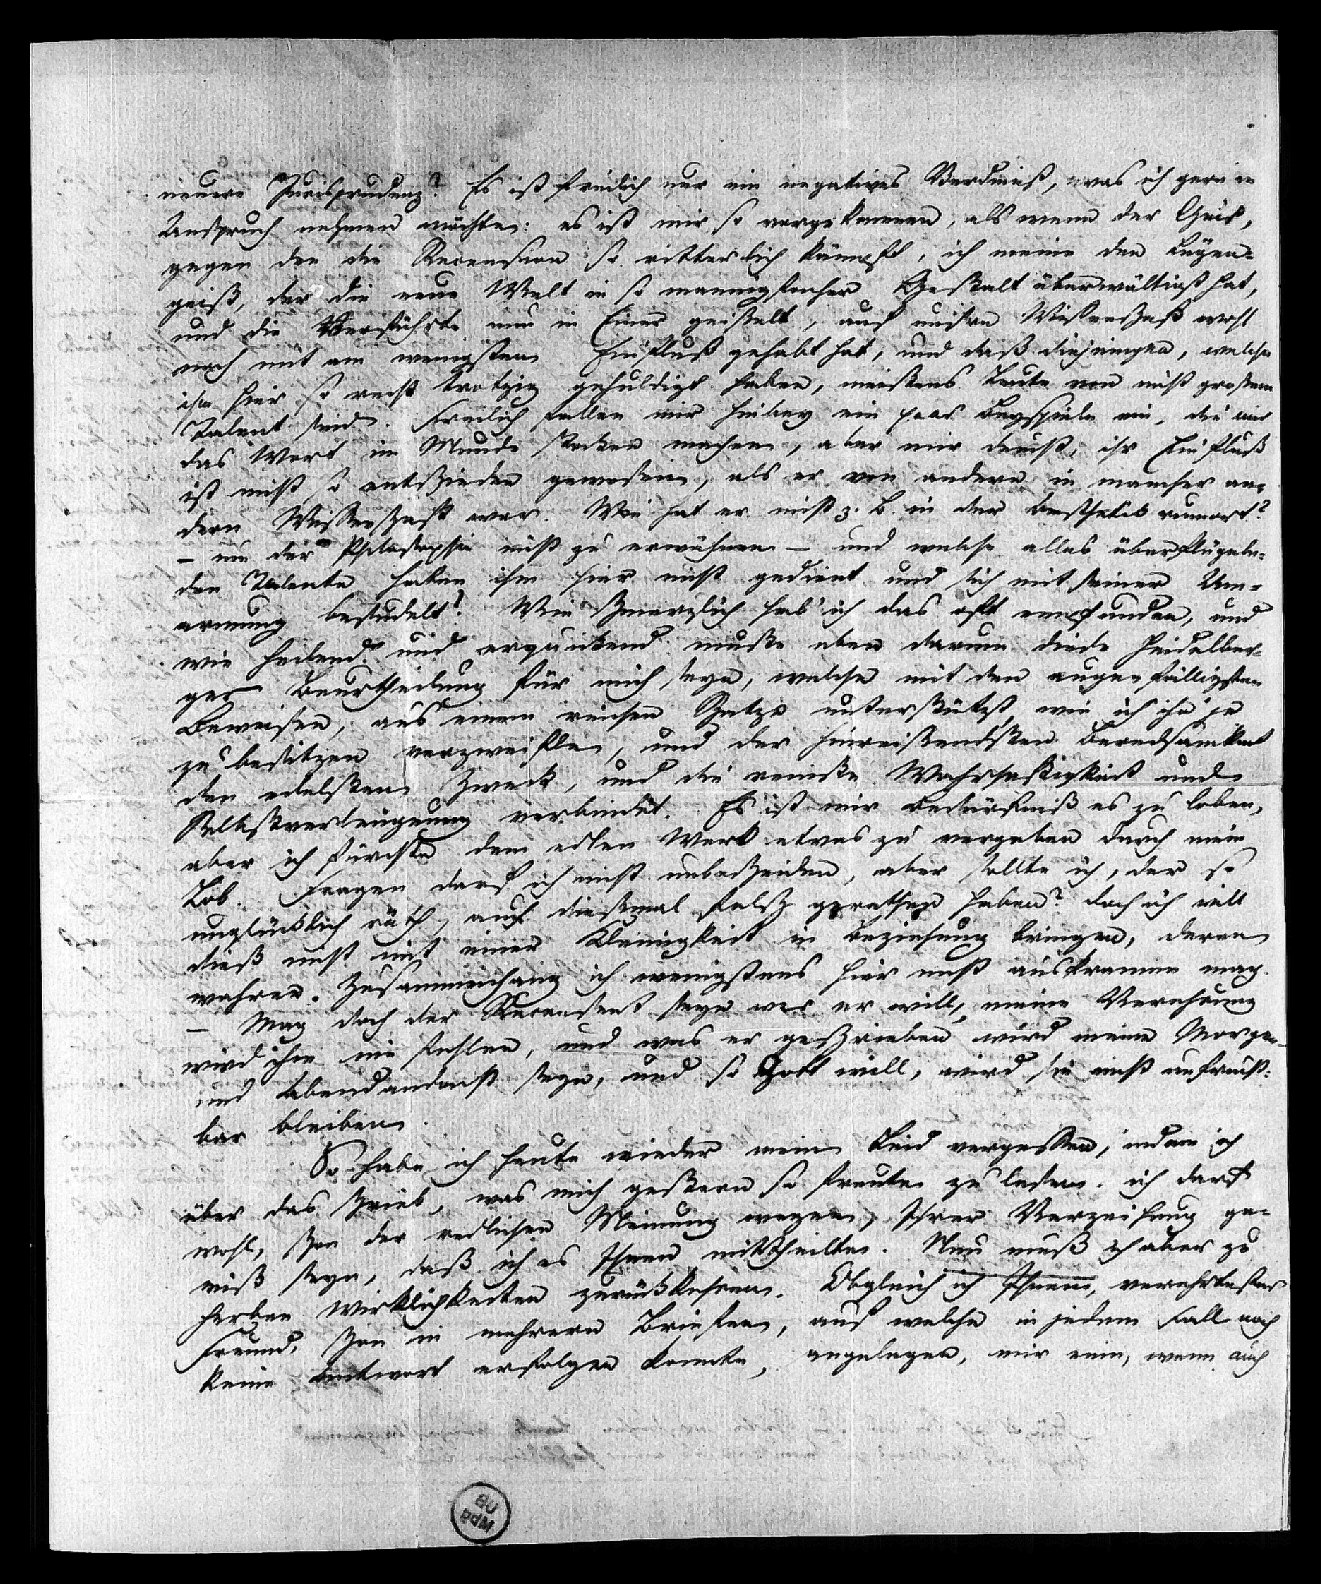 neuere Jurisprudenz? Es ist freilich nur ein negatives Verdienst, was ich gern in
Anspruch nehmen möchte: es ist mir so vorgekommen, als wenn der Geist,
gegen den die Recension so ritterlich kämpft, ich meine den Lügen-
geist, der die neue Welt in so mannigfacher Gestalt überwältigt hat,
und die Verführte nun in Einer geißelt, auf unsre Wissenschaft wohl
noch mit am wenigsten Einfluß gehabt hat, und daß diejenigen, welche
ihm hier so recht trotzig gehuldigt haben, meistens Leute von nicht großem
Talent sind. Freilich fallen mir hierbey ein paar Beyspiele ein, die mir
das Wort im Munde stocken machen, aber mir deucht, ihr Einfluß
ist nicht so entschieden gewesen, als er von andern in mancher an-
dern Wissenschaft war. Wie hat er nicht z. B. in der Aesthetik rumort?
– um der Philosophie nicht zu erwähnen – und welche alles überflügeln-
den Talente haben ihm hier nicht gedient und sich mit seiner Um-
armung besudelt? Wie schmerzlich hab' ich das oft empfunden, und
wie heilend und erquickend mußte eben darum diese Heidelber-
ger Beurtheilung für mich seyn, welche mit den augenfälligsten
Beweisen, aus einem reichen Schatze unterstützt, wie ich ihn je
zu besitzen verzweifle, und der hinreißendsten Beredsamkeit
den edelsten Zweck, und die reinste Wahrhaftigkeit und
Selbstverleugnung verbindet. Es ist mir Bedürfniß es zu loben,
aber ich fürchte dem edlen Werk etwas zu vergeben durch mein
Lob. Fragen darf ich nicht unbescheiden, aber sollte ich, der so
unglücklich räth, auch dießmal falsch gerathen haben? doch ich will
dieß nicht mit einer Kleinigkeit in Beziehung bringen, deren
wahren Zusammenhang ich wenigstens hier nicht auskramen mag.
– Mag doch der Recensent seyn wer er will, meine Verehrung
wird ihm nie fehlen, und was er geschrieben wird meine Morgen-
und Abendandacht seyn, und so Gott will, wird sie nicht unfrucht-
bar bleiben.
So habe ich heute wieder mein Leid vergessen, indem ich
über das schrieb, was mich gestern so freute zu lesen. ich darf
wohl, schon der redlichen Meinung wegen, Ihrer Verzeihung ge-
wiß seyn, daß ich es Ihnen mittheilte. Nun muß ich aber zu
herben Wirklichkeiten zurückkehren. Obgleich ich Ihnen, verehrtester
Freund, schon in mehrern Briefen, auf welche in jedem Fall noch
keine Antwort erfolgen konnte, angelegen, mir eine, wenn auch